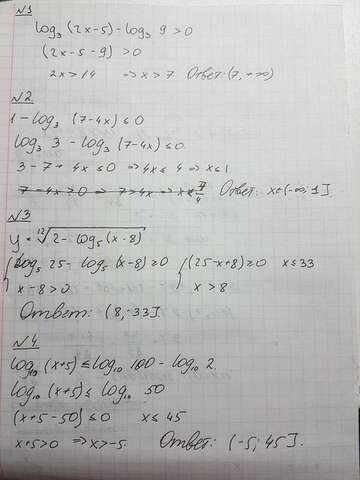 №1
log₃ (2x-5) - log₃ 9 > 0
(2x-5-9) > 0
2x > 14 ⇒ x > 7 Ответ (7, +∞)
№2
1 - log₃ (7-4x) ≤ 0
log₃ 3 - log₃ (7-4x) ≤ 0.
3 - 7 + 4x ≤ 0 ⇒ 4x ≤ 4 ⇒ x ≤ 1.
7 - 4x > 0 ⇒ 7 > 4x ⇒ x < 7/4 Ответ: x ∈ (-∞; 1].
№3
y = ¹²√(2 - log₅ (x-8))
{ log₅ 25 - log₅ (x-8) ≥ 0 { (25-x+8) ≥ 0 x ≤ 33
x - 8 > 0. x > 8
Ответ: (8, 33].
№4
log₁₀ (x+5) ≤ log₁₀ 100 - log₁₀ 2.
log₁₀ (x+5) ≤ log₁₀ 50
(x+5-50) ≤ 0 x ≤ 45
x+5 > 0 ⇒ x > -5. Ответ: (-5; 45].